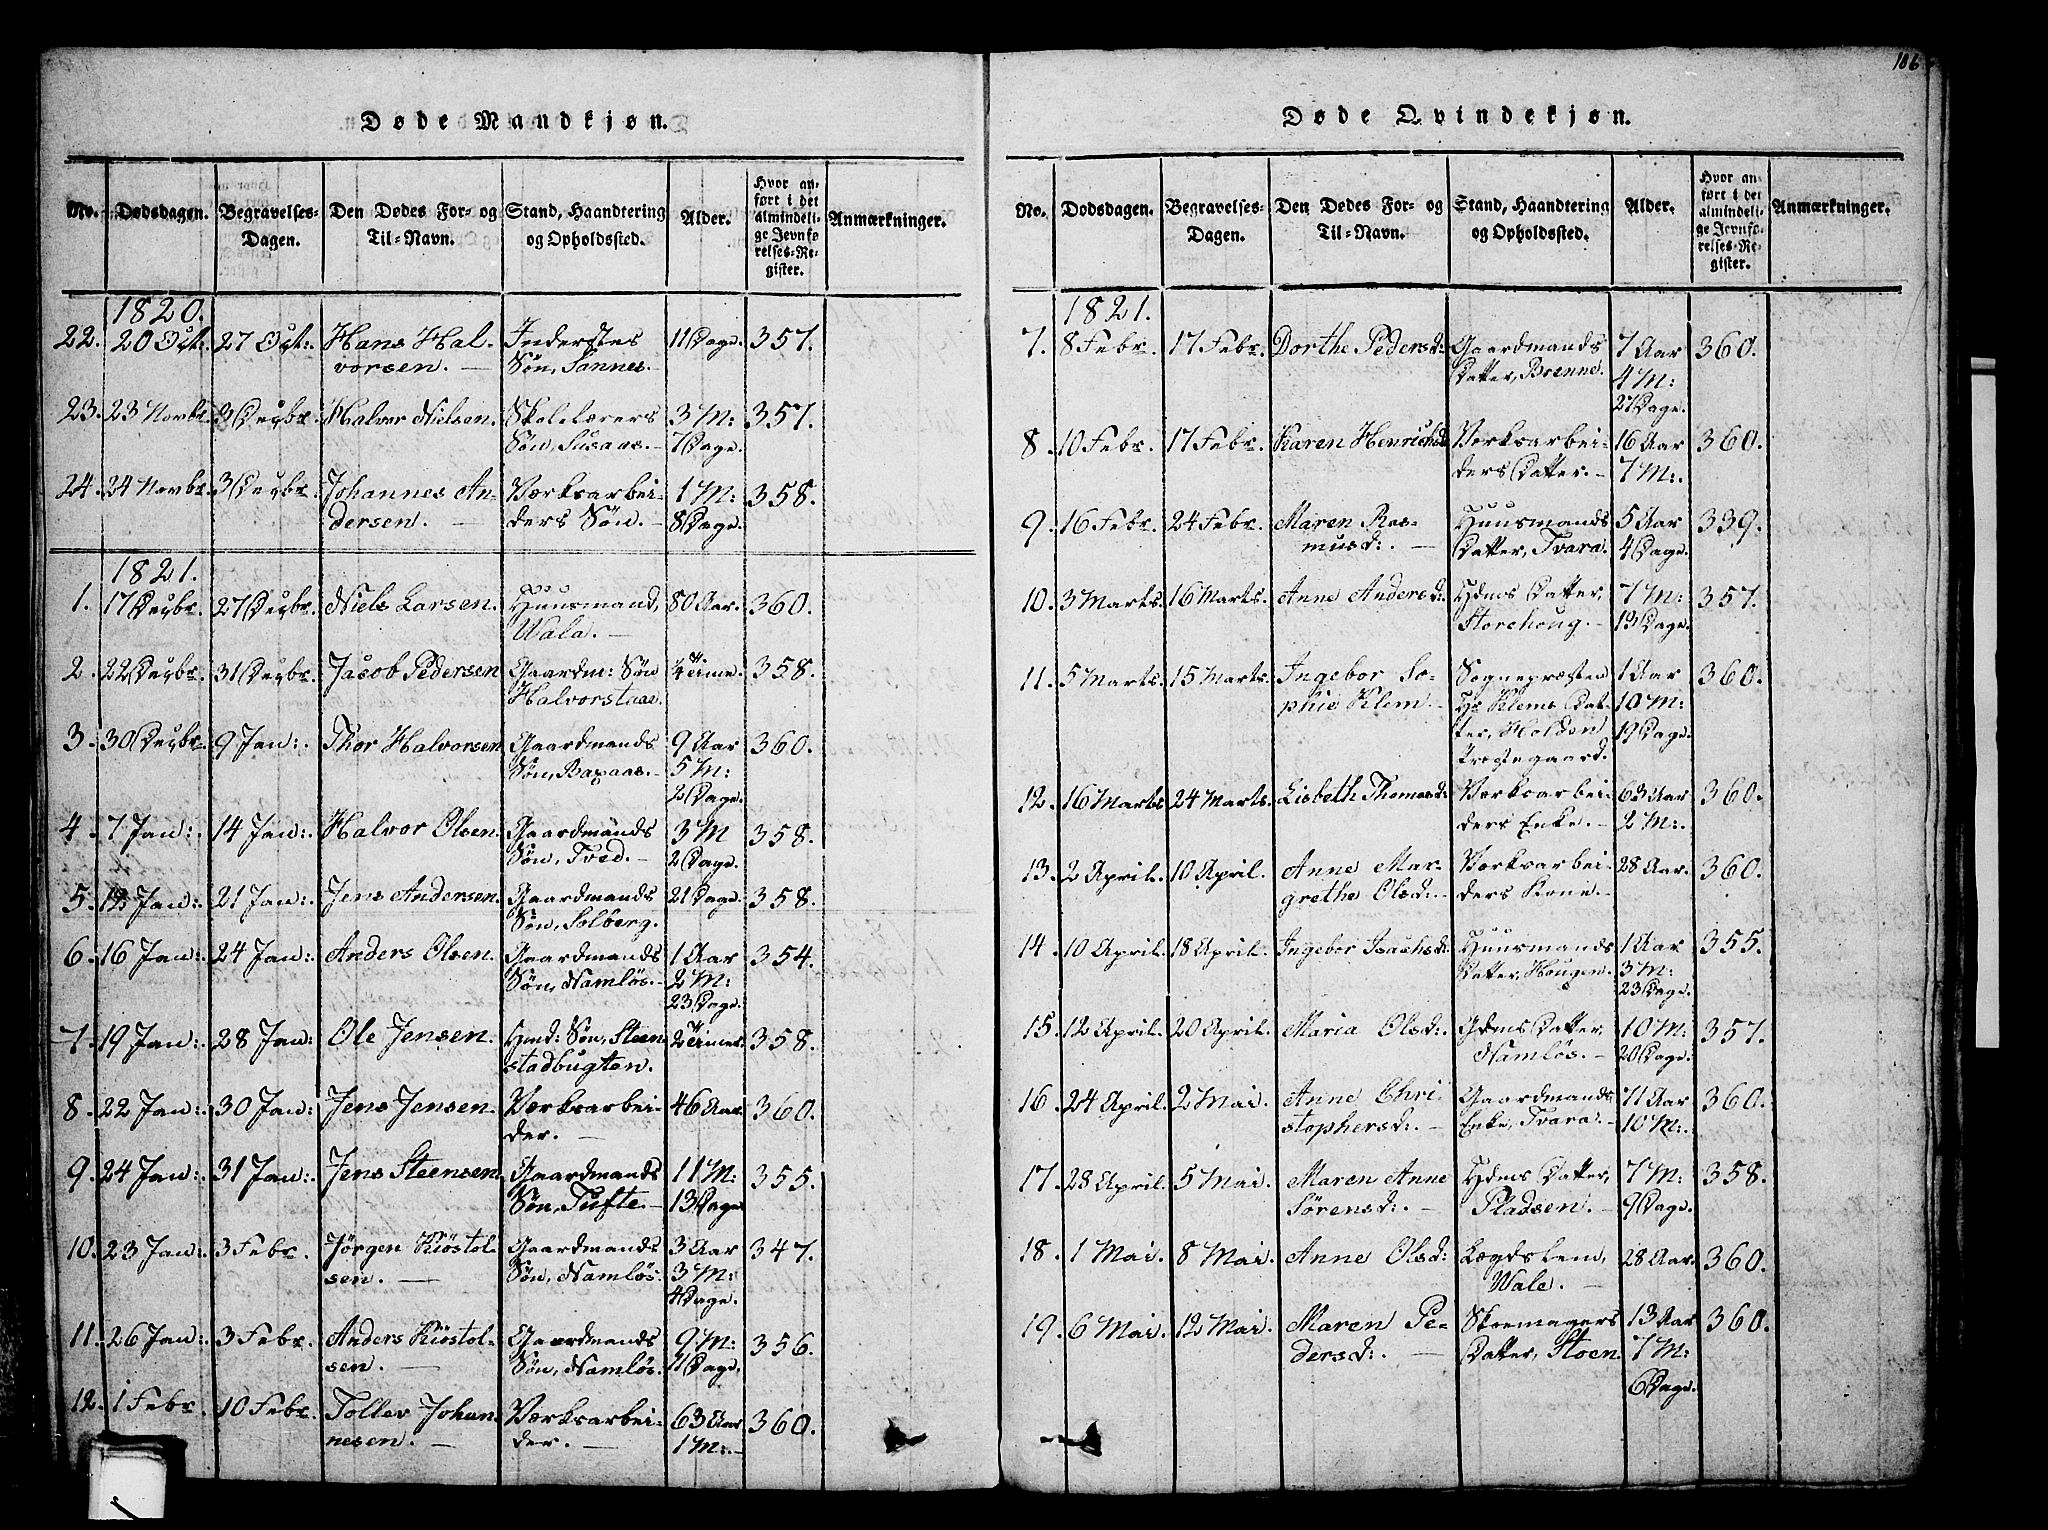 186
Døde Mandkjøn.
No. Dødsdagen. Begravelses-Dagen. Den Dødes For- og Til-Navn. Stand, Haandtering og Opholdssted. Alder. Hvor anført i det almindelige Jevnførelses-Register. Anmærkninger.
1820.
22. 20 Oct: 27 Oct: Hans Hal- Inderstes 11 Dage. 357.
vorsen. Søn, Sannes.
23. 23 Novbr. 3 Decbr. Halvor Nielsen. Skolelærers 3 M: 357.
Søn, Susaas. 7 Dage.
24. 24 Novbr. 3 Decbr. Johannes An- Værksarbei- 1 M: 358.
dersen. ders Søn. 8 Dage.
1821.
1. 17 Decbr. 27 Decbr. Niels Larsen. Huusmand, 80 Aar. 360.
Wala.
2. 22 Decbr. 31 Decbr. Jacob Pedersen Gaardm: Søn 1/4 Time. 358.
Halvorstaae.
3. 30 Decbr. 9 Jan: Thor Halvorsen Gaardmands 9 Aar 360.
Søn, 5 M:
2 Dage.
4. 7 Jan: 14 Jan: Halvor Olsen. Gaardmands 3 M 358.
Søn, Tved. 2 Dage.
5. 12 Jan: 21 Jan: Jens Andersen. Gaardmands 21 Dage. 358.
Søn, Solberg.
6. 16 Jan: 24 Jan: Anders Olsen. Gaardmands 1 Aar 354.
Søn, Namløs. 2 M:
23 Dage.
7. 19 Jan: 28 Jan: Ole Jensen. Hmd: Søn, Steen- 2 Timer. 358.
stadbugten.
8. 22 Jan: 30 Jan: Jens Jensen. Værksarbei- 46 Aar. 360.
der.
9. 24 Jan: 31 Jan: Jens Steensen. Gaardmands 11 M: 355.
Søn, Tufte. 13 Dage
10. 23 Jan: 3 Febr. Jørgen Kiöstol- Gaardmands 3 Aar 347.
sen. Søn, Namløs. 3 M:
4 Dage.
11. 26 Jan: 3 Febr. Anders Kiöstol- Gaardmands 9 M: 356.
sen. Søn, Namløs. 11 Dage.
12. 1 Febr. 10 Febr. Tollev Johan- Værksarbei- 63 Aar 360.
nesen. der. 1 M:
Døde Qvindekjøn.
No. Dødsdagen. Begravelses-Dagen. Den Dødes For- og Til-Navn. Stand, Haandtering og Opholdssted. Alder. Hvor anført i det almindelige Jevnførelses-Register. Anmærkninger.
1821.
7. 8 Febr. 17 Febr. Dorthe Pedersd: Gaardmands 7 Aar 360.
Datter, Brenne. 4 M:
27 Dage.
8. 10 Febr. 17 Febr. Karen Henrichsd: Værksarbei- 16 Aar 360.
ders Datter. 7 M:
9. 16 Febr. 24 Febr. Maren Ras- Huusmands 5 Aar 339.
musd: Datter, Tvara. 4 Dage.
10. 3 Marts. 16 Marts. Anne Andersd: Hdms Datter, 7 M: 357.
Storehoug. 13 Dage.
11. 5 Marts. 15 Marts. Ingebor So- Sognepræsten 1 Aar 360.
phie Klem. Hr Klems Dat- 10 M:
ter, Holden 19 Dage.
Præstegaard.
12. 16 Marts 24 Marts. Lisbeth Thomasd: Værksarbei- 63 Aar 360.
ders Enke. 2 M:
13. 2 April. 10 April. Anne Mar- Værksarbei- 28 Aar. 360.
grethe Olsd: ders Kone.
14. 10 April. 18 April. Ingebor Isachsd: Huusmands 1 Aar 355.
Datter, Hougen. 3 M:
23 Dage.
15. 12 April. 20 April. Maria Olsd: Gdms Datter, 10 M: 357.
Namløs. 20 Dage.
16. 24 April. 2 Mai. Anne Chri- Gaardmands 71 Aar 360.
stophersd: Enke, Tvara. 10 M:
17. 28 April. 5 Mai. Maren Anne Hdms Datter, 7 M: 358.
Sørensd: Pladsen. 9 Dage.
18. 1 Mai. 8 Mai. Anne Olsd: Lægdslem, 28 Aar. 360.
Wale.
19. 6 Mai. 12 Mai. Maren Pe- Skoemagers 13 Aar 360.
dersd: Datter, Stoen. 7 M:
6 Dage.